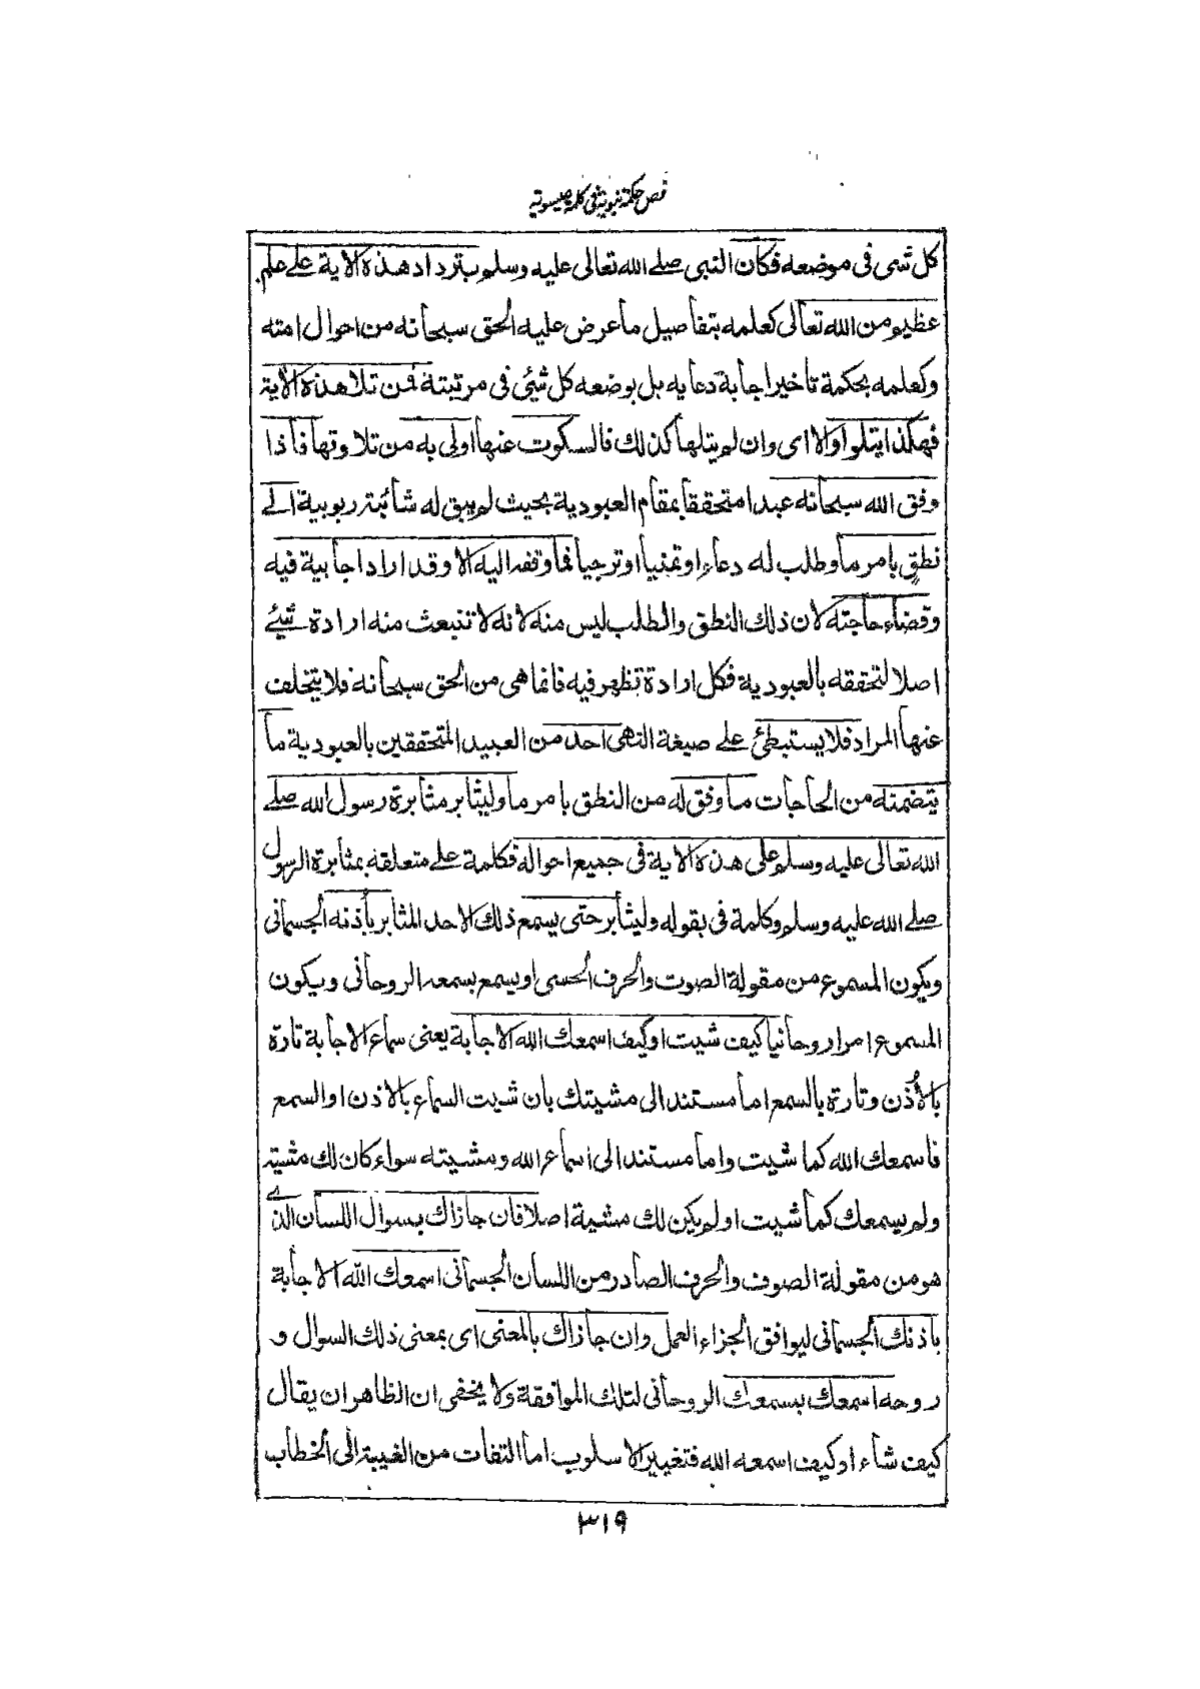 فص حكمة نبوية فى كلمة عيسوية
كل شى فى موضعه فكان النبى صلے الله تعالى عليه وسلم بترداد هذه الاية علے علم
عظيم من الله تعالى كعلمه بتفاصيل ما عرض عليه الحق سبحانه من احوال امته
وكعلمه بحكمة تاخير اجابة دعايه بل بوضعه كل شئ فى مرتبته فمن تلا هذه الاية
فهكذا يتلو اولا اى وان لم يتلها كذلك فالسكوت عنها اولى به من تلاوتها فاذا
وفق الله سبحانه عبدا متحققا بمقام العبودية بحيث لم يبق له شائبة ربوبية الے
نطق بامر ما وطلب له دعاء او تمنيا او ترجيا فما وقفه اليه الا وقد اراد اجابية فيه
وقضاء حاجته لان ذلك النطق والطلب ليس منه لانه لا تنبعث منه ارادة شيئے
اصلا لتحققه بالعبودية فكل ارادة تظهر فيه فانما هى من الحق سبحانه فلا يتخلف
عنها المراد فلا يستبطئ علے صيغة النهى احد من العبيد المتحققين بالعبودية ما
يتضمنه من الحاجات ما وفق له من النطق بامر ما وليثابر مثابرة رسول الله صلے
الله تعالى عليه وسلم على هذه الاية فى جميع احواله فكلمة علے متعلقه بمثابرة الرسول
صلے الله عليه وسلم وكلمة فى بقوله وليثابر حتى يسمع ذلك الاحد المثابر باذنه الجسمانى
ويكون المسموع من مقولة الصوت والحرف الحسى او يسمع بسمعه الروحانى ويكون
المسموع امرا روحانيا كيف شيت او كيف اسمعك الله الاجابة يعنى سماع الاجابة تارة
بالاُذن وتارة بالسمع اما مستند الى مشيتك بان شيت السماع بالاذن او السمع
فاسمعك الله كما شيت واما مستند الى اسماع الله ومشيته سواء كان لك مشية
ولم يسمعك كما شيت او لم يكن لك مشية اصلا فان جازاك بسوال اللسان الذے
هو من مقولة الصوف والحرف الصادر من اللسان الجسمانى اسمعك الله الاجابة
باذنك الجسمانى ليوافق الجزاء العمل وان جازاك بالمعنى اى بمعنى ذلك السوال و
روحه اسمعك بسمعك الروحانى لتلك الموافقة ولا يخفى ان الظاهر ان يقال
كيف شاء او كيف اسمعه الله فتغيير الاسلوب اما التفات من الغيبة الى الخطاب
٣١٩